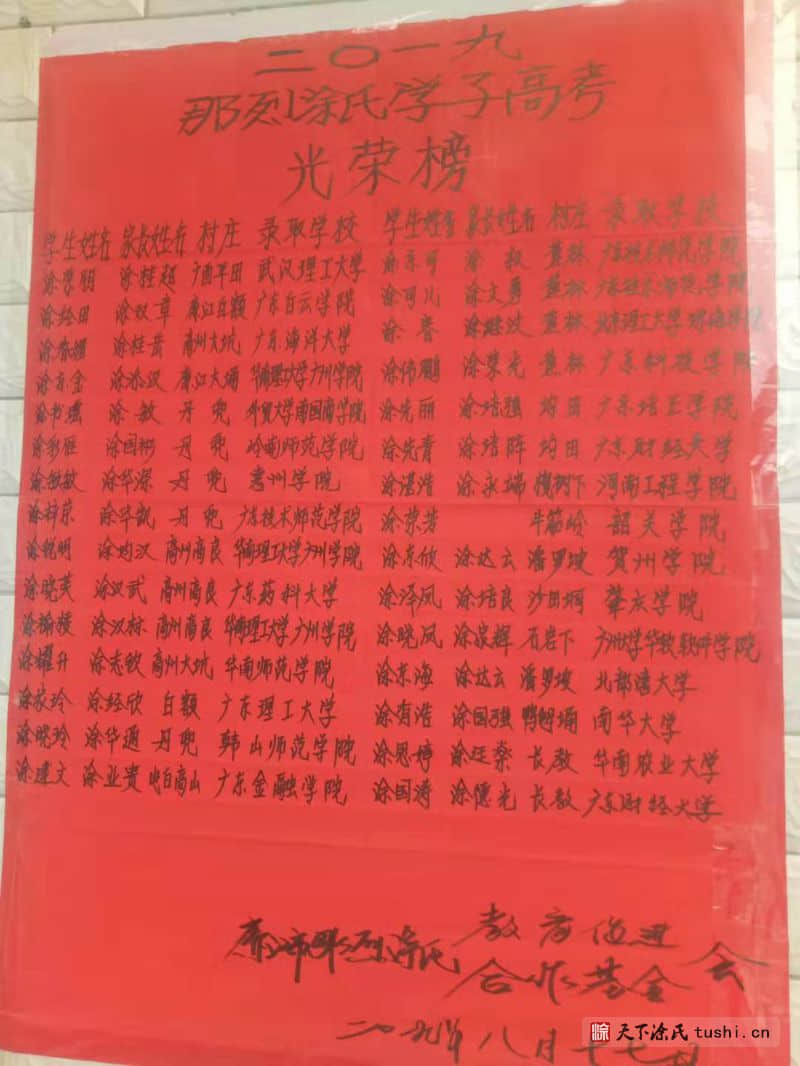 二〇一九
那烈涂氏学子高考
光荣榜
学生姓名 家长姓名 村庄 录取学校
涂荣朋 涂桂超 广西平田 武汉理工大学
涂经田 涂汝章 廉江白颖 广东白云学院
涂春媚 涂桂岳 高州大坑 广东海洋大学
涂京金 涂添汉 廉江大埇 华南理工大学广州学院
涂书瑶 涂敏 丹兜 外贸大学南国商学院
涂彩雁 涂国彬 丹兜 岭南师范学院
涂敏敏 涂华深 丹兜 惠州学院
涂梓乐 涂华凯 丹兜 广东技术师范学院
涂锐明 涂均汉 高州高良 华南理工大学广州学院
涂晓英 涂汉武 高州高良 广东药科大学
涂榆棱 涂汉标 高州高良 华南理工大学广州学院
涂耀升 涂志钦 高州大坑 华南师范学院
涂家玲 涂经欣 白颖 广东理工大学
涂晓玲 涂华通 丹兜 韩山师范学院
涂建文 涂业贵 电白高山 广东金融学院
学生姓名 家长姓名 村庄 录取学校
涂京可 涂权 蕉林 广东技术师范学院
涂可儿 涂文勇 蕉林 广东技术师范学院
涂誉 涂继波 蕉林 北京理工大学珠海学院
涂伟鹏 涂荣光 蕉林 广东科技学院
涂先丽 涂培强 坞田 广东培正学院
涂先青 涂培阵 坞田 广东财经大学
涂湛浩 涂永瑞 槐树下 河南工程学院
涂荣芳 牛箱岭 韶关学院
涂东欣 涂达云 潘罗坡 贺州学院
涂泽凤 涂培良 沙田垌 肇庆学院
涂晓凤 涂家辉 石岩下 广州大学华软软件学院
涂东海 涂达云 潘罗坡 北部湾大学
涂有浩 涂国强 鸭乸埇 南华大学
涂思婷 涂廷荣 长教 华南农业大学
涂国涛 涂德光 长教 广东财经大学
廉江市那烈涂氏 教育促进
合作基金会
二〇一九年八月十七日
涂 天下涂氏 tushi.cn